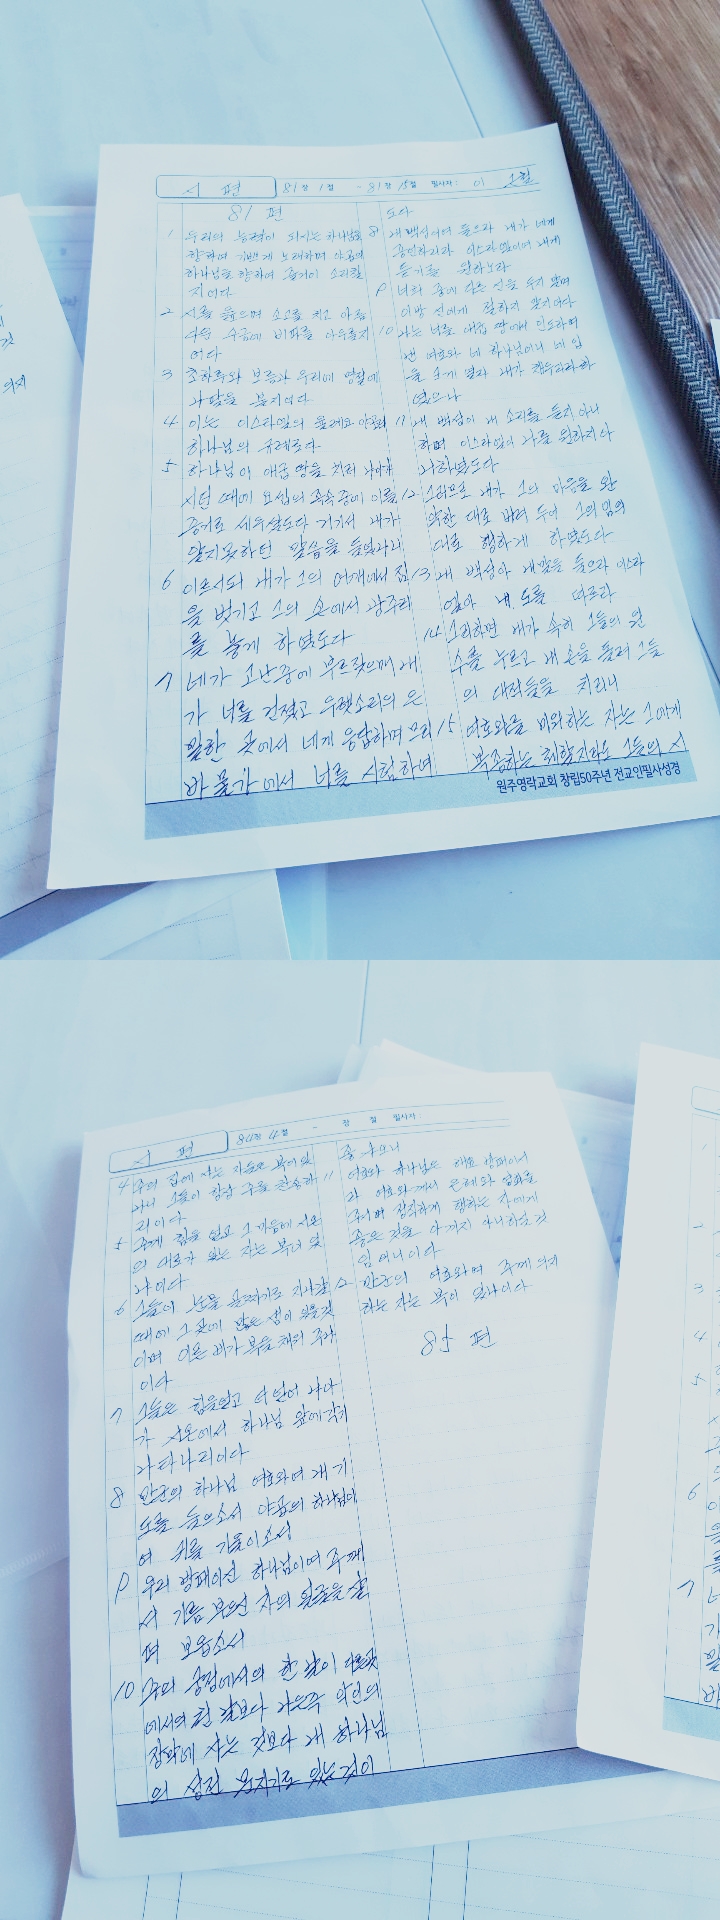 시 편 81 장 1 절 - 81 장 15 절 필사자 : 이
81 편
1 우리의 능력이 되시는 하나님을
향하여 기쁘게 노래하며 야곱의
하나님을 향하여 즐거이 소리칠
지어다
2 시를 읊으며 소고를 치고 아름
다운 수금에 비파를 아우를지
어다
3 초하루와 보름과 우리에 명절에
나팔을 불지어다
4 이는 이스라엘의 율례요 야곱의
하나님의 규례로다
5 하나님이 애굽 땅을 치러 나아가
시던 때에 요셉의 족속 중에 이를
증거로 세우셨도다 거기서 내가
알지못하던 말씀을 들었나니
6 이르시되 내가 그의 어깨에서 짐
을 벗기고 그의 손에서 광주리
를 놓게 하였도다
7 네가 고난중에 부르짖으매 내
가 너를 건졌고 우렛소리의 은
밀한 곳에서 네게 응답하며 므리
바 물가에서 너를 시험하여
도다
8 내 백성이여 들으라 내가 네게
증언하리라 이스라엘이여 내게
듣기를 원하노라
9 너희 중에 다른 신을 두지 말며
이방 신에게 절하지 말지어다
10 나는 너를 애굽 땅에서 인도하여
낸 여호와 네 하나님이니 네 입
을 크게 열라 내가 채우리라 하
였으나
11 내 백성이 내 소리를 듣지 아니
하며 이스라엘이 나를 원하지 아
니하였도다
12 그러므로 내가 그의 마음을 완
악한 대로 버려 두어 그의 임의
대로 행하게 하였도다
13 내 백성아 내 말을 들으라 이스라
엘아 내 도를 따르라
14 그리하면 내가 속히 그들의 원
수를 누르고 내 손을 돌려 그들
의 대적들을 치리니
15 여호와를 미워하는 자는 그에게
복종하는 체할지라도 그들의 시
원주영락교회 창립50주년 전교인필사성경
시 편 84 장 4 절 - 장 절 필사자 :
4 주의 집에 사는 자들은 복이 있
나니 그들이 항상 주를 찬송하
리이다
5 주께 힘을 얻고 그 마음에 시온
의 대로가 있는 자는 복이 있
나이다
6 그들이 눈물 골짜기로 지나갈
때에 그 곳에 많은 샘이 있을 것
이며 이른 비가 복을 채워 주나
이다
7 그들은 힘을얻고 더 얻어 나아
가 시온에서 하나님 앞에 각기
나타나리이다
8 만군의 하나님 여호와여 내 기
도를 들으소서 야곱의 하나님이
여 귀를 기울이소서
9 우리 방패이신 하나님이여 주께
서 기름 부으신 자의 얼굴을 살
펴 보옵소서
10 주의 궁정에서의 한 날이 다른곳
에서의 천 날보다 나은즉 악인의
장막에 사는 것보다 내 하나님
의 성전 문지기로 있는 것이
좋사오니
11 여호와 하나님은 해요 방패이시
라 여호와께서 은혜와 영화를
주시며 정직하게 행하는 자에게
좋은 것을 아끼지 아니하실 것
임이니이다
12 만군의 여호와여 주께 의지
하는 자는 복이 있나이다
85 편